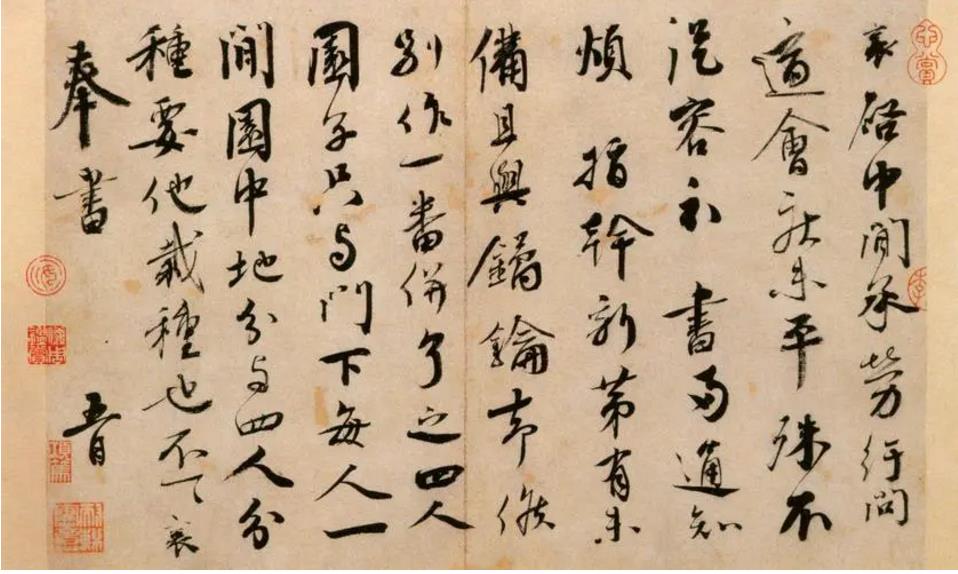 啓中間承勞行問
適會疾未平殊不
從容 書再通知
煩指幹新第有未
備且與鐍鑰却候
別作一番併了之四人
園子只与門下每人一
間園中地分与四人分
種要他栽種也不
奉書 五月